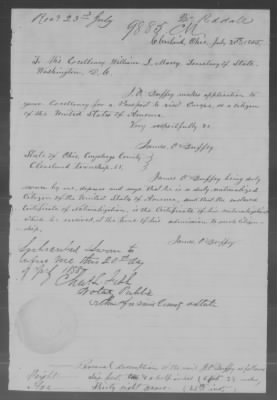 Recd 23rd July
9885 CM
Cleveland, Ohio, July 20th 1855.
To His Excellency William L. Marcy, Secretary of State.
Washington, D.C.
J. O'Duffey makes application to
your Excellency for a Passport to visit Europe, as a citizen
of the United States of America.
Very respectfully &c.
James O'Duffey
State of Ohio, Cuyahoga County
Cleveland Township, ss.
James O'Duffey being duly
sworn by me, deposes and says that he is a duly naturalized
Citizen of the United States of America, and that the enclosed
Certificate of Naturalization, is the Certificate of his naturalization
which he received at the time of his admission to such Citizen-
ship.
James O'Duffey
Subscribed & Sworn to
before me this 20th day
of July 1855
Notary Public
within & for said County & State
Personal description of the said J. O'Duffey as follows
Height
Age Thirty eight years